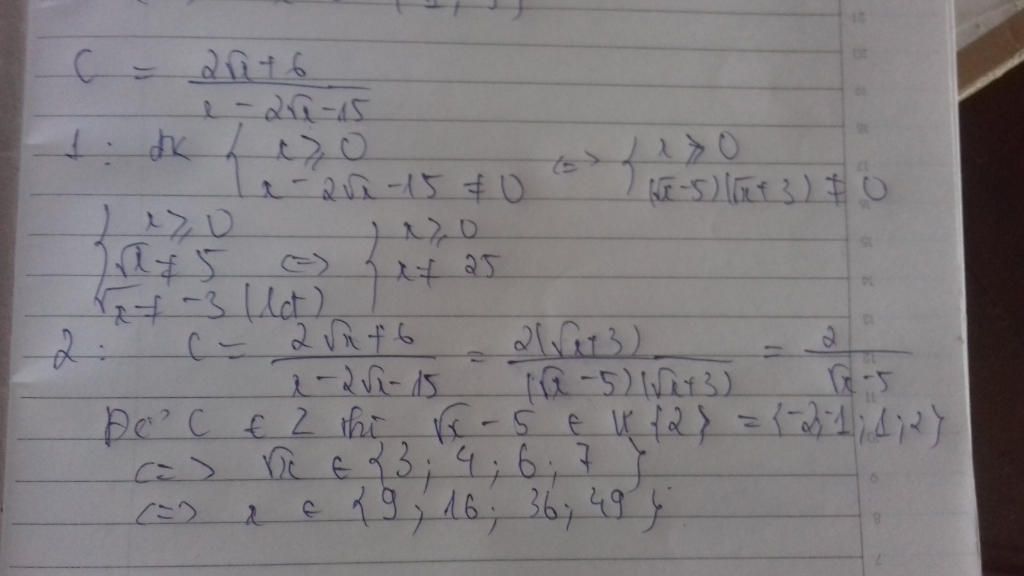 C = (2√x + 6) / (x - 2√x - 15)
1 : ĐK { x ≥ 0 ; x - 2√x - 15 ≠ 0 <=> { x ≥ 0 ; (√x - 5)(√x + 3) ≠ 0
{ x ≥ 0 ; √x ≠ 5 ; √x ≠ -3 (lđ) <=> { x ≥ 0 ; x ≠ 25
2 : C = (2√x + 6) / (x - 2√x - 15) = 2(√x + 3) / (√x - 5)(√x + 3) = 2 / (√x - 5)
Để C ∈ Z thì √x - 5 ∈ Ư {2} = {-2;-1;1;2}
<=> √x ∈ {3; 4; 6; 7}
<=> x ∈ {9; 16; 36; 49}